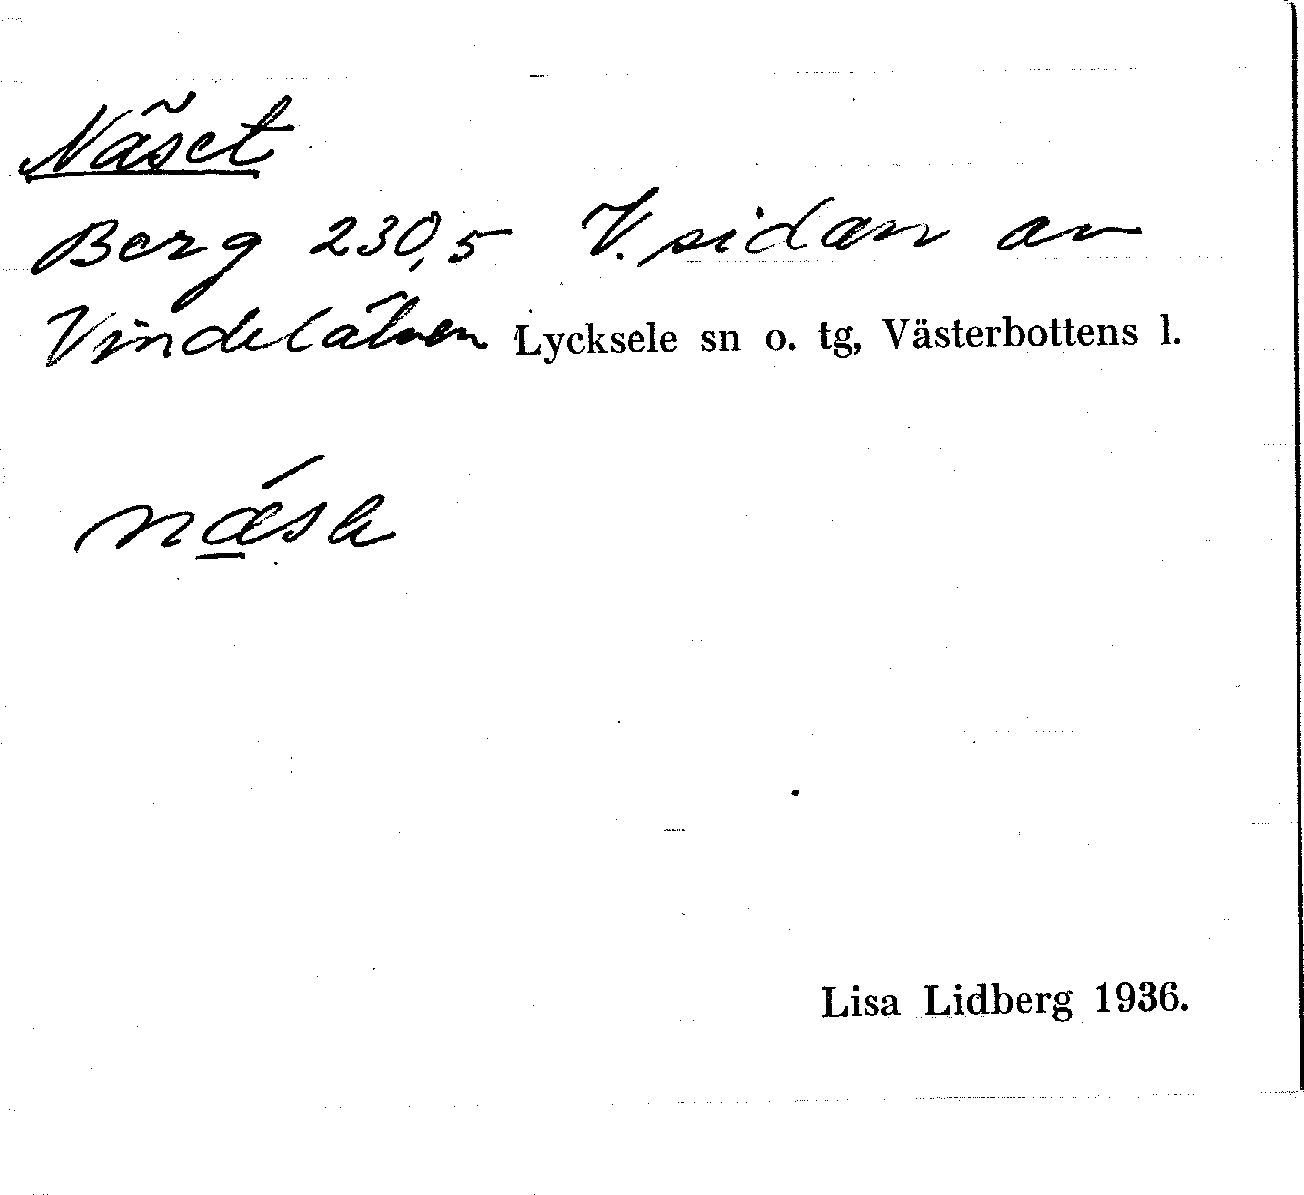 Näset
Berg 230,5 V. sidan av
Vindelälven Lycksele sn o. tg, Västerbottens l.
Lisa Lidberg 1936.